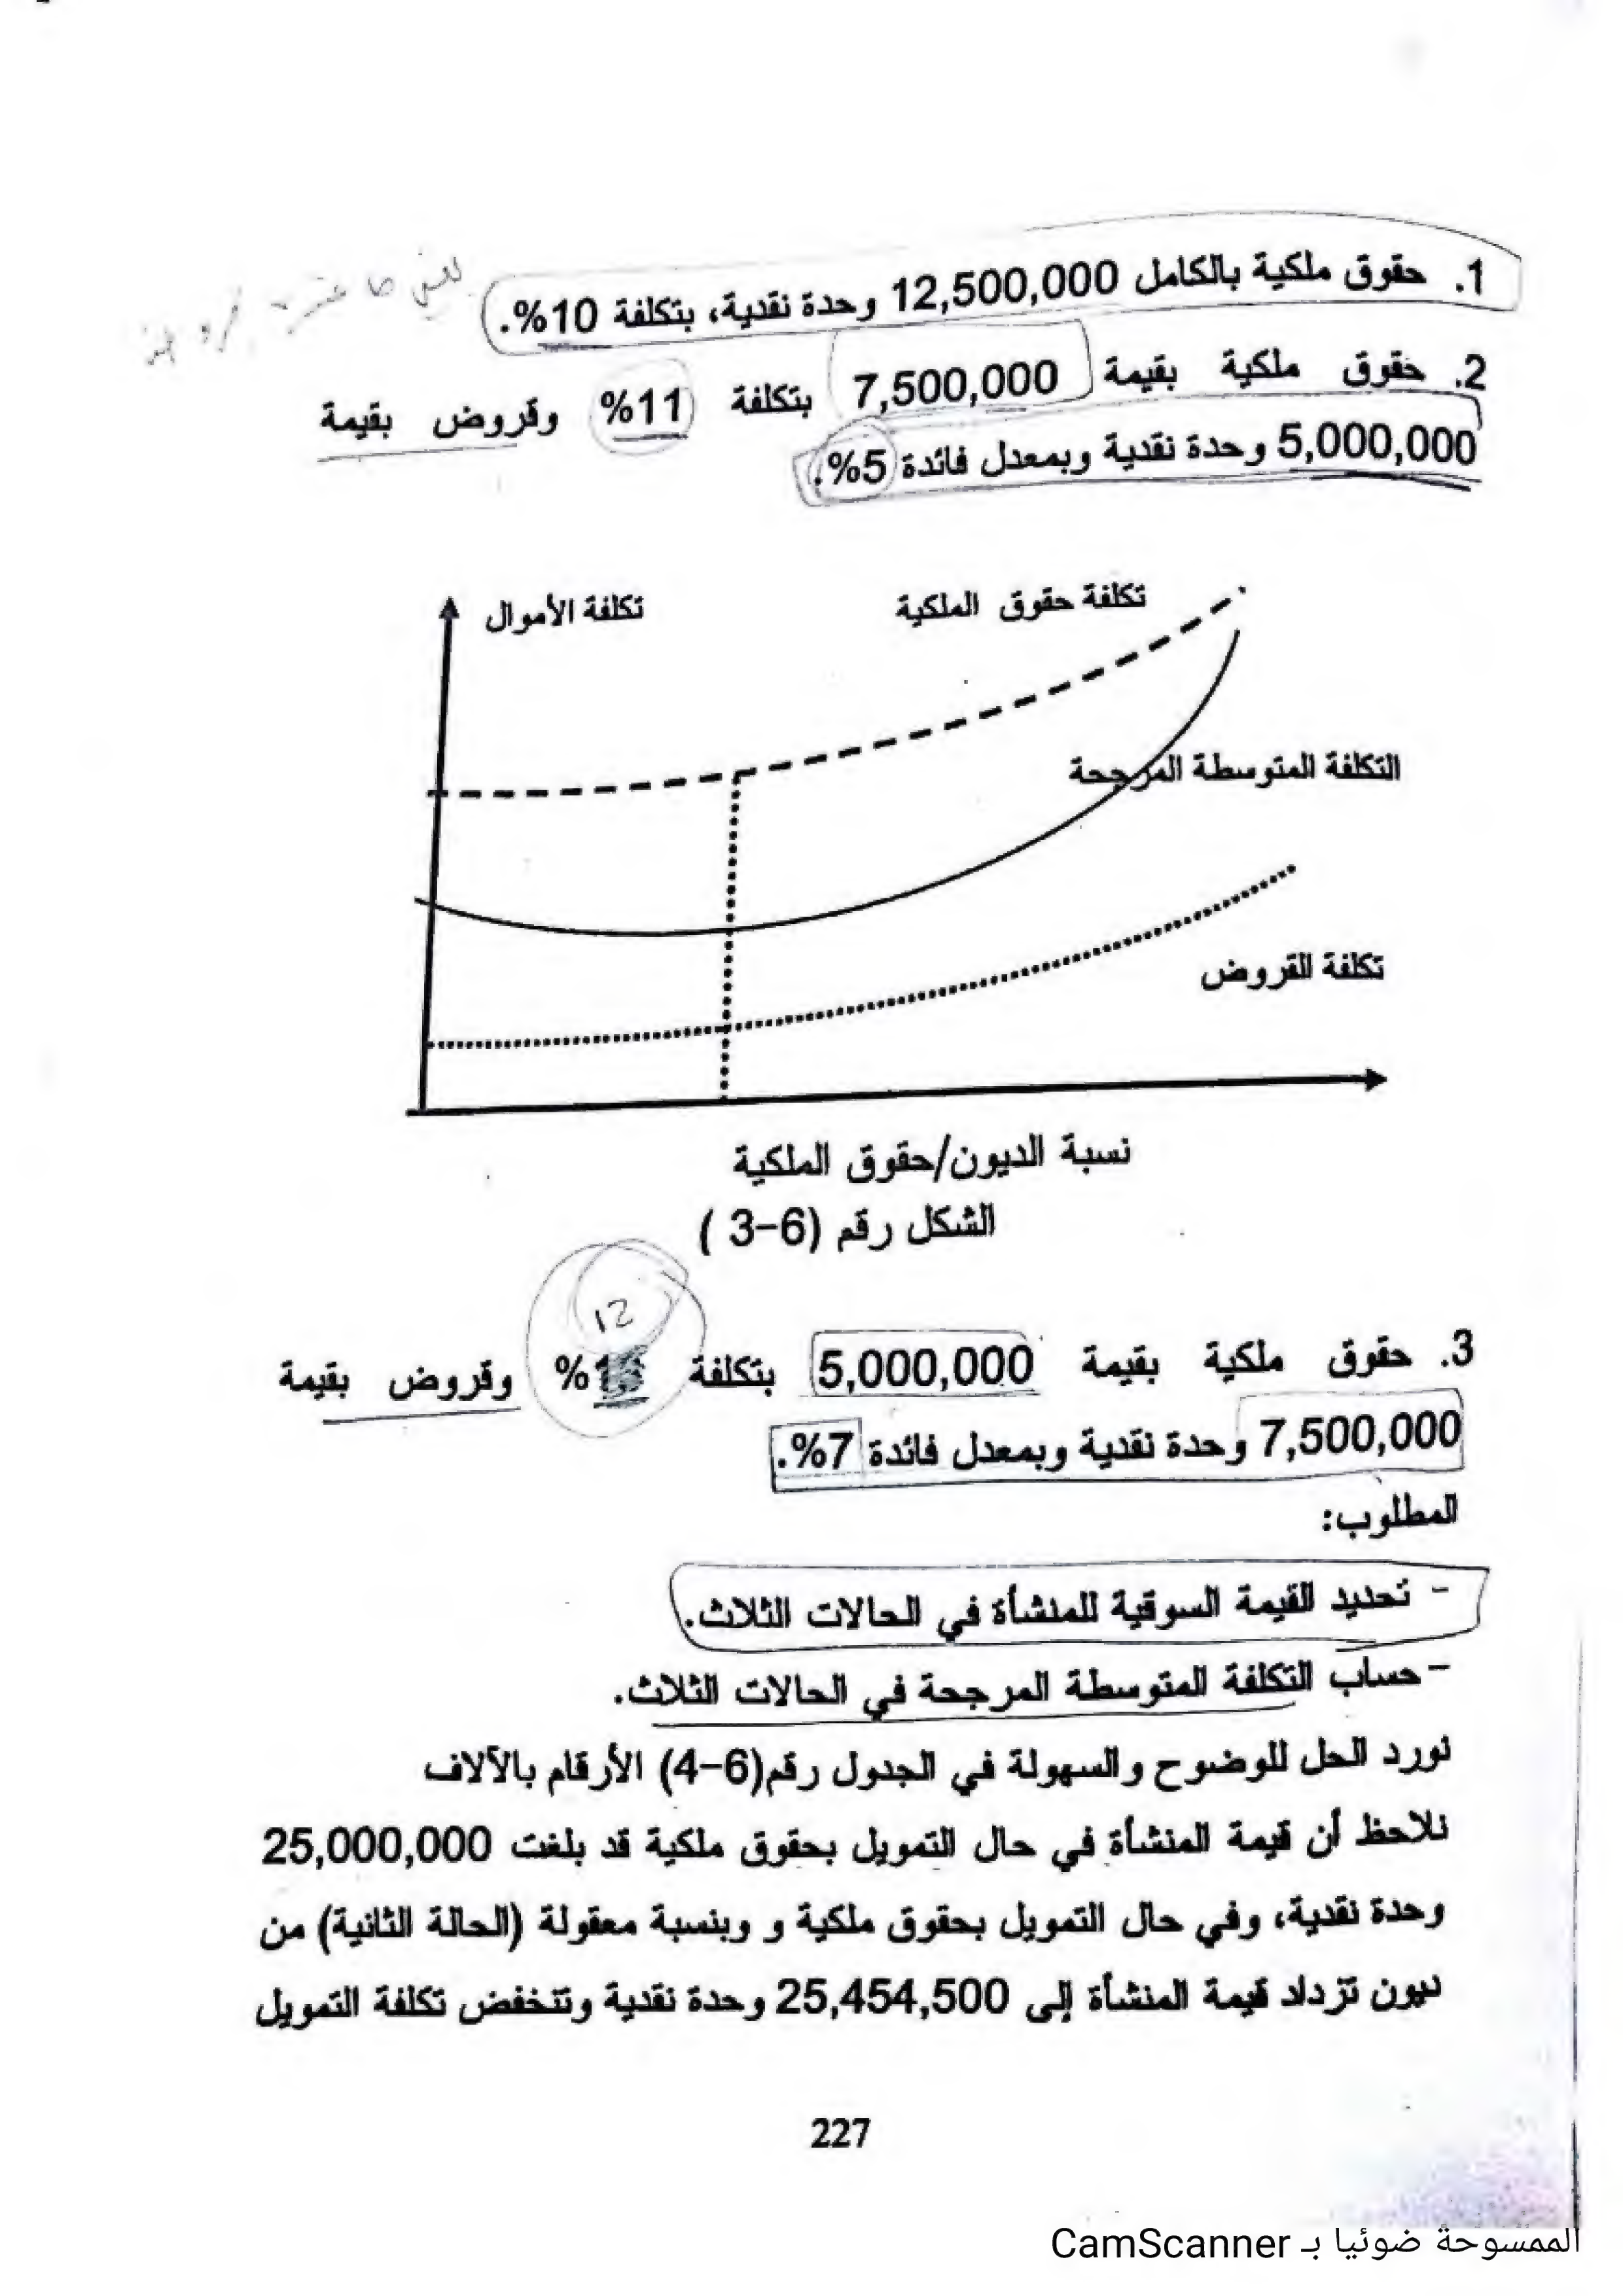 1. حقوق ملكية بالكامل 12,500,000 وحدة نقدية، بتكلفة 10%.
2. حقوق ملكية بقيمة 7,500,000 بتكلفة 11% وقروض بقيمة
5,000,000 وحدة نقدية وبمعدل فائدة 5%.
تكلفة الأموال
تكلفة حقوق الملكية
التكلفة المتوسطة المرجحة
تكلفة القروض
نسبة الديون/حقوق الملكية
الشكل رقم (6-3 )
12
3. حقوق ملكية بقيمة 5,000,000 بتكلفة % وقروض بقيمة
7,500,000 وحدة نقدية وبمعدل فائدة 7%.
المطلوب:
- تحديد القيمة السوقية للمنشأة في الحالات الثلاث.
- حساب التكلفة المتوسطة المرجحة في الحالات الثلاث.
نورد الحل للوضوح والسهولة في الجدول رقم(6-4) الأرقام بالآلاف
نلاحظ أن قيمة المنشأة في حال التمويل بحقوق ملكية قد بلغت 25,000,000
وحدة نقدية، وفي حال التمويل بحقوق ملكية و وبنسبة معقولة (الحالة الثانية) من
ديون تزداد قيمة المنشأة إلى 25,454,500 وحدة نقدية وتنخفض تكلفة التمويل
227
الممسوحة ضوئيا بـ CamScanner